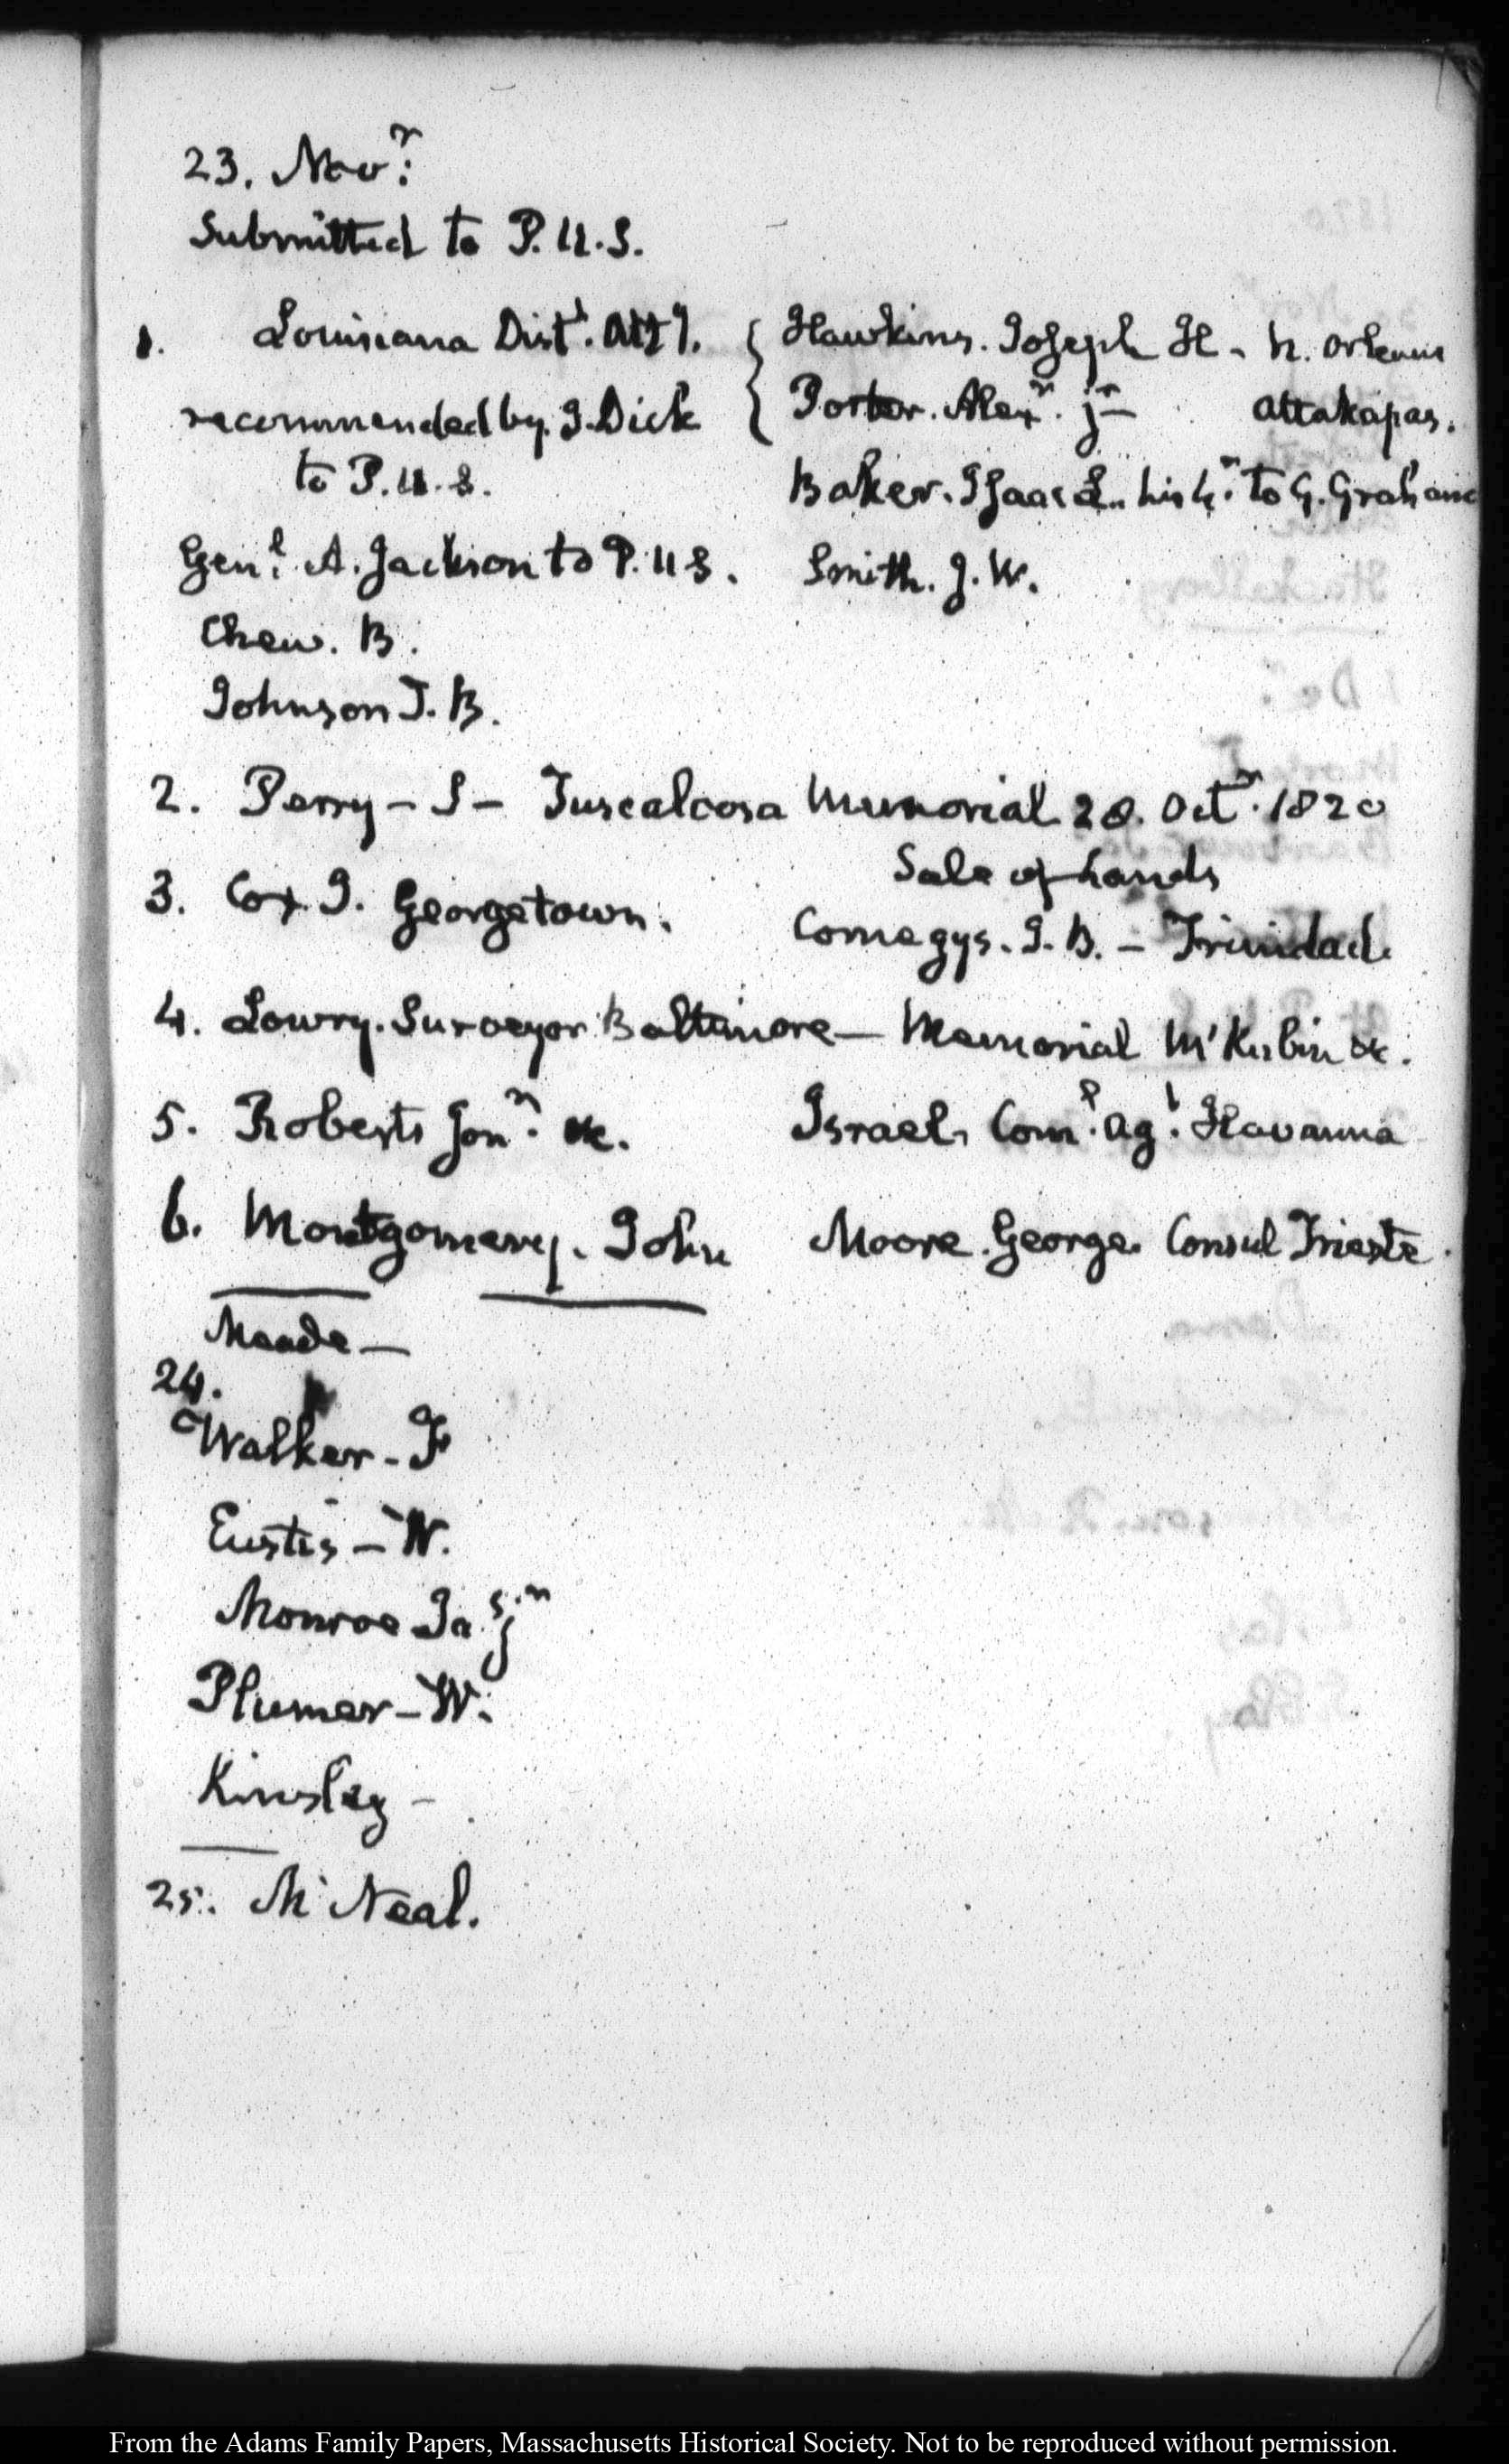 23. Nov.r
Submitted to P. U. S.
1. Louisiana Dist.t Att.y. { Hawkins. Joseph H - N. Orleans
recommended by J. Dick { Porter. Alex.r jr — Attakapas.
to P. U. S. Baker. Isaac L. his L.r to G. Graham
Gen.l A. Jackson to P. U S. Smith. J. W.
Chew. B.
Johnson J. B.
2. Perry – S – Tuscaloosa Memorial 20. Oct.r 1820
Sale of Lands
3. Cox J. Georgetown. Comegys. J. B. – Trinidad.
4. Lowry. Surveyor Baltimore — Memorial M'Kubin &c.
5. Roberts Jon.n &c. Israel, Com.l Ag.t Havanna
6. Montgomery. John Moore. George. Consul Trieste.
Meade —
24.
Walker – F
Eustis – W.
Monroe Ja.s jr
Plumer – W.
Kinsley –
25. M'Neal.
From the Adams Family Papers, Massachusetts Historical Society. Not to be reproduced without permission.